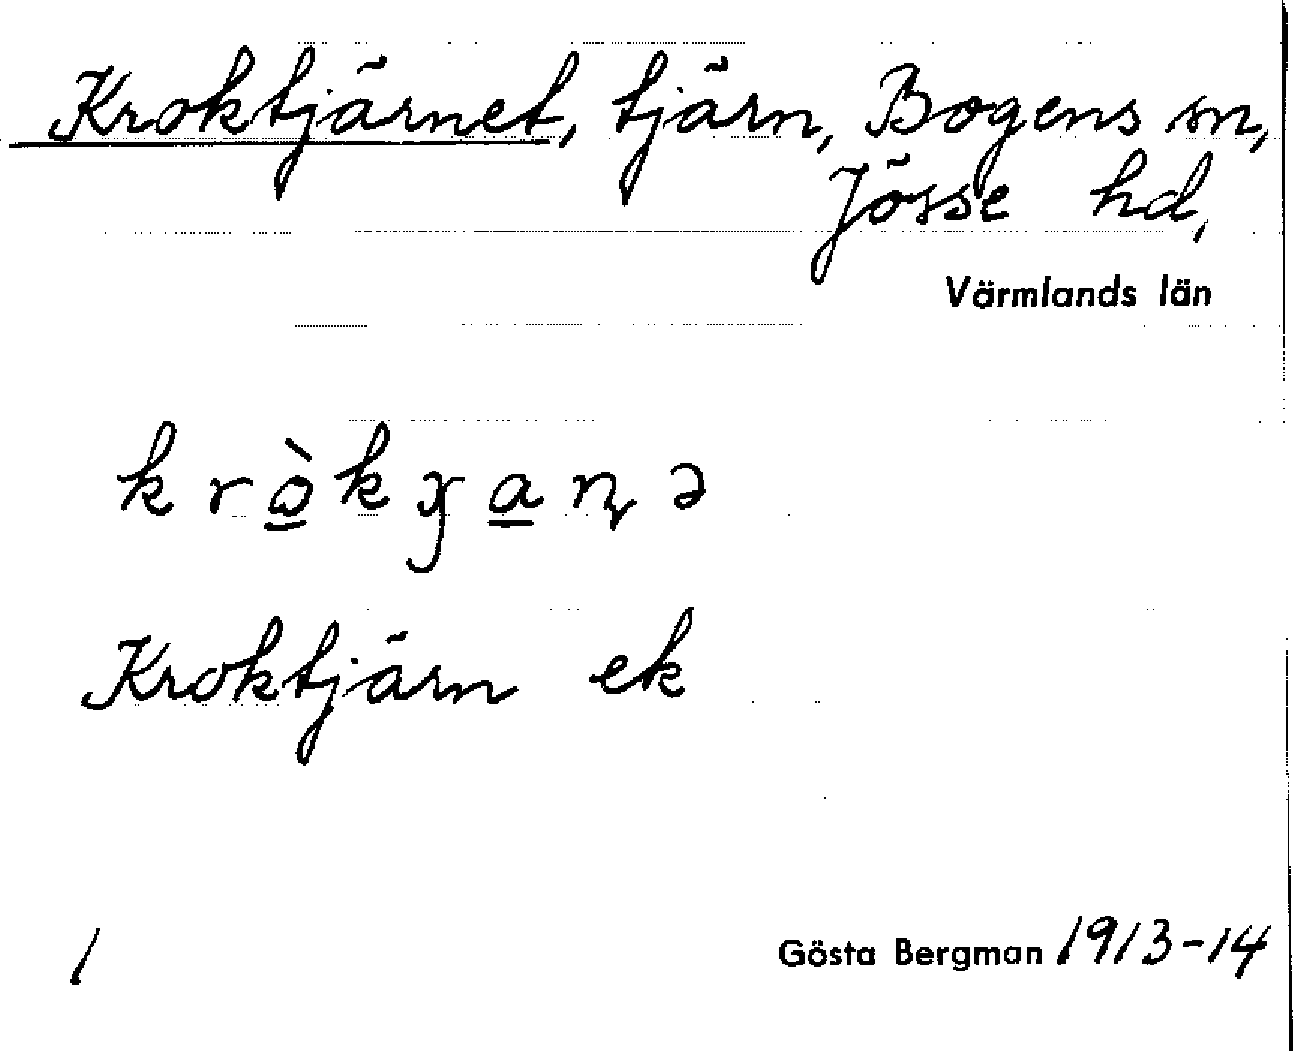 Kroktjärnet, tjärn, Bogens sn,
Jösse hd,
Värmlands län
krò̱kɣa̱ɳə
Kroktjärn ek
1
Gösta Bergman 1913-14